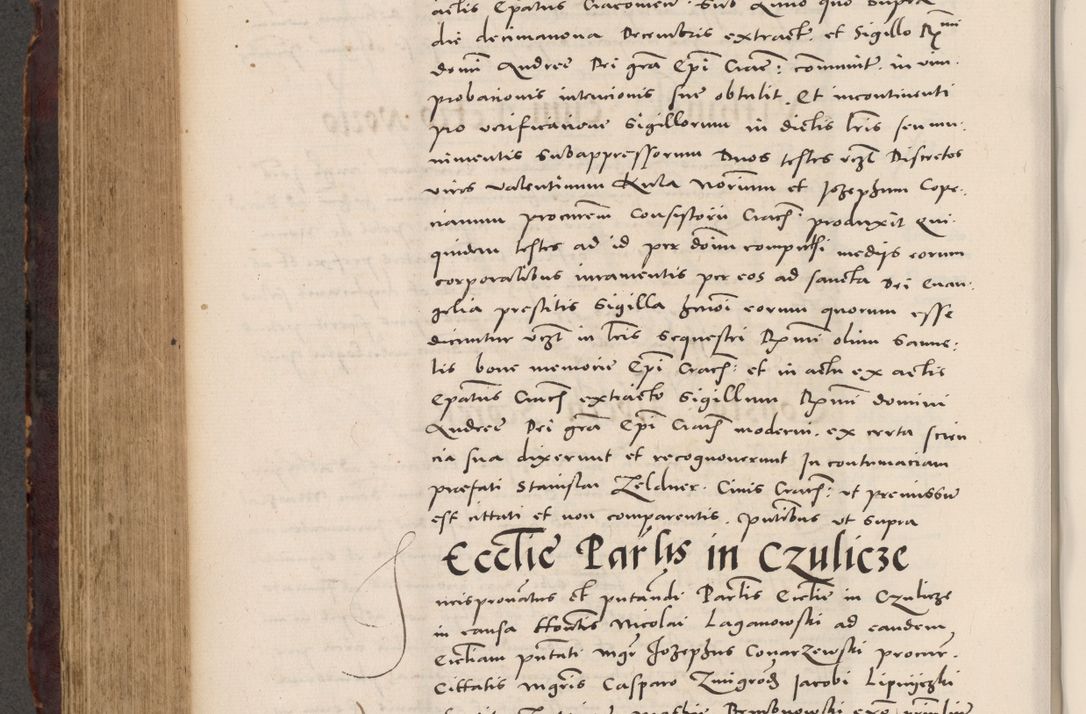 actis Epatus Cracovien. sub Anno quo supra
die decimanona Decembris extract. et Sigillo Rmi
domi Andree Dei gra Epi Crac: communit. in vim
probationis intencionis sue obtulit. Et incontinenti
pro verificatione Sigillorum in dictis lris seu mu-
nimentis subappressorum Duos testes vczt Discretos
viros Valentinum Kula Notarium et Jozephum Cope-
cianum procurem Consistorii Cracs produxit Qui-
quidem testes ad id per dom compulsi medijs eorum
corporalibus iuramentis per eos ad sancta Dei Evan-
gelia prestitis Sigilla eorum quorum esse
dicuntur vczt in lris sequestri Rmi olim Samue-
lis bone memorie Epi Cracs: et in actu ex actis
Epatus Cracs extracto Sigillum Rmi domini
Andree Dei gra Epi Cracs moderni. ex certa scien
cia sua dixerunt et recognoverunt In contumaciam
præfati Stanislai Zeldner. Civis Cracs: ut premissum
est cittati et non comparentis. pntibus ut supra
Ecclie Parlis in Czulicze
ncisprovatus et putandi Parlis Ecclie in Czulicze
in causa Nicolai Laganowski ad eandem
Eccliam pntati mgr Jozephus Conarzewski procur.
Cittatis mgris Casparo Zmigrod Jacobi Lipnyczki